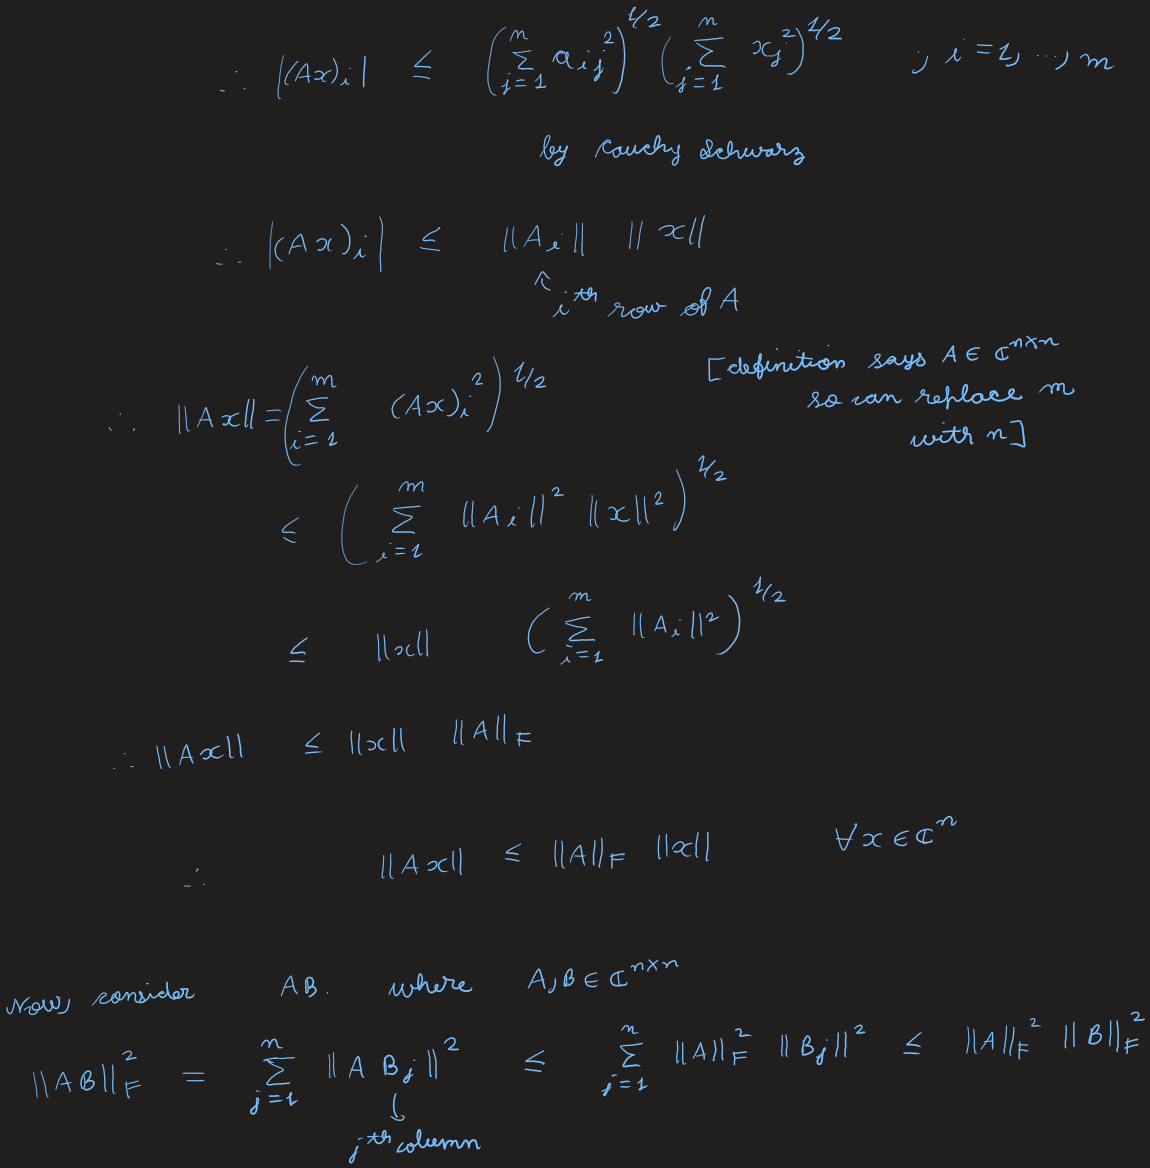 ∴ |(Ax)ᵢ| ≤ (∑_{j=1}^{n} a_{ij}²)^{1/2} (∑_{j=1}^{n} x_j²)^{1/2} ; i = 1, ..., m
by Cauchy Schwarz
∴ |(Ax)ᵢ| ≤ ||Aᵢ|| ||x||
↑ i^{th} row of A
[definition says A ∈ ℂ^{n×n}
so can replace m
with n]
∴ ||Ax|| = (∑_{i=1}^{m} (Ax)ᵢ²)^{1/2}
≤ (∑_{i=1}^{m} ||Aᵢ||² ||x||²)^{1/2}
≤ ||x|| (∑_{i=1}^{m} ||Aᵢ||²)^{1/2}
∴ ||Ax|| ≤ ||x|| ||A||_F
∴ ||Ax|| ≤ ||A||_F ||x|| ∀ x ∈ ℂ^n
Now, consider AB. where A, B ∈ ℂ^{n×n}
||AB||_F² = ∑_{j=1}^{n} ||A B_j||² ≤ ∑_{j=1}^{n} ||A||_F² ||B_j||² ≤ ||A||_F² ||B||_F²
↓
j^{th} column